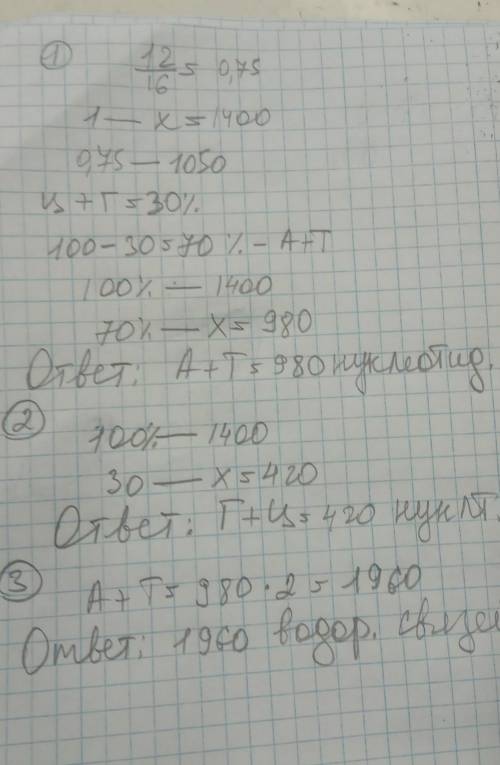 ①
12/16 = 0,75
1 — х = 1400
0,75 — 1050
ц + Г = 30%
100 - 30 = 70% - А + Т
100% — 1400
70% — х = 980
Ответ: А + Т = 980 нуклеотид.
②
100% — 1400
30 — х = 420
Ответ: Г + ц = 420 нукл.
③
А + Т = 980 · 2 = 1960
Ответ: 1960 водор. связей